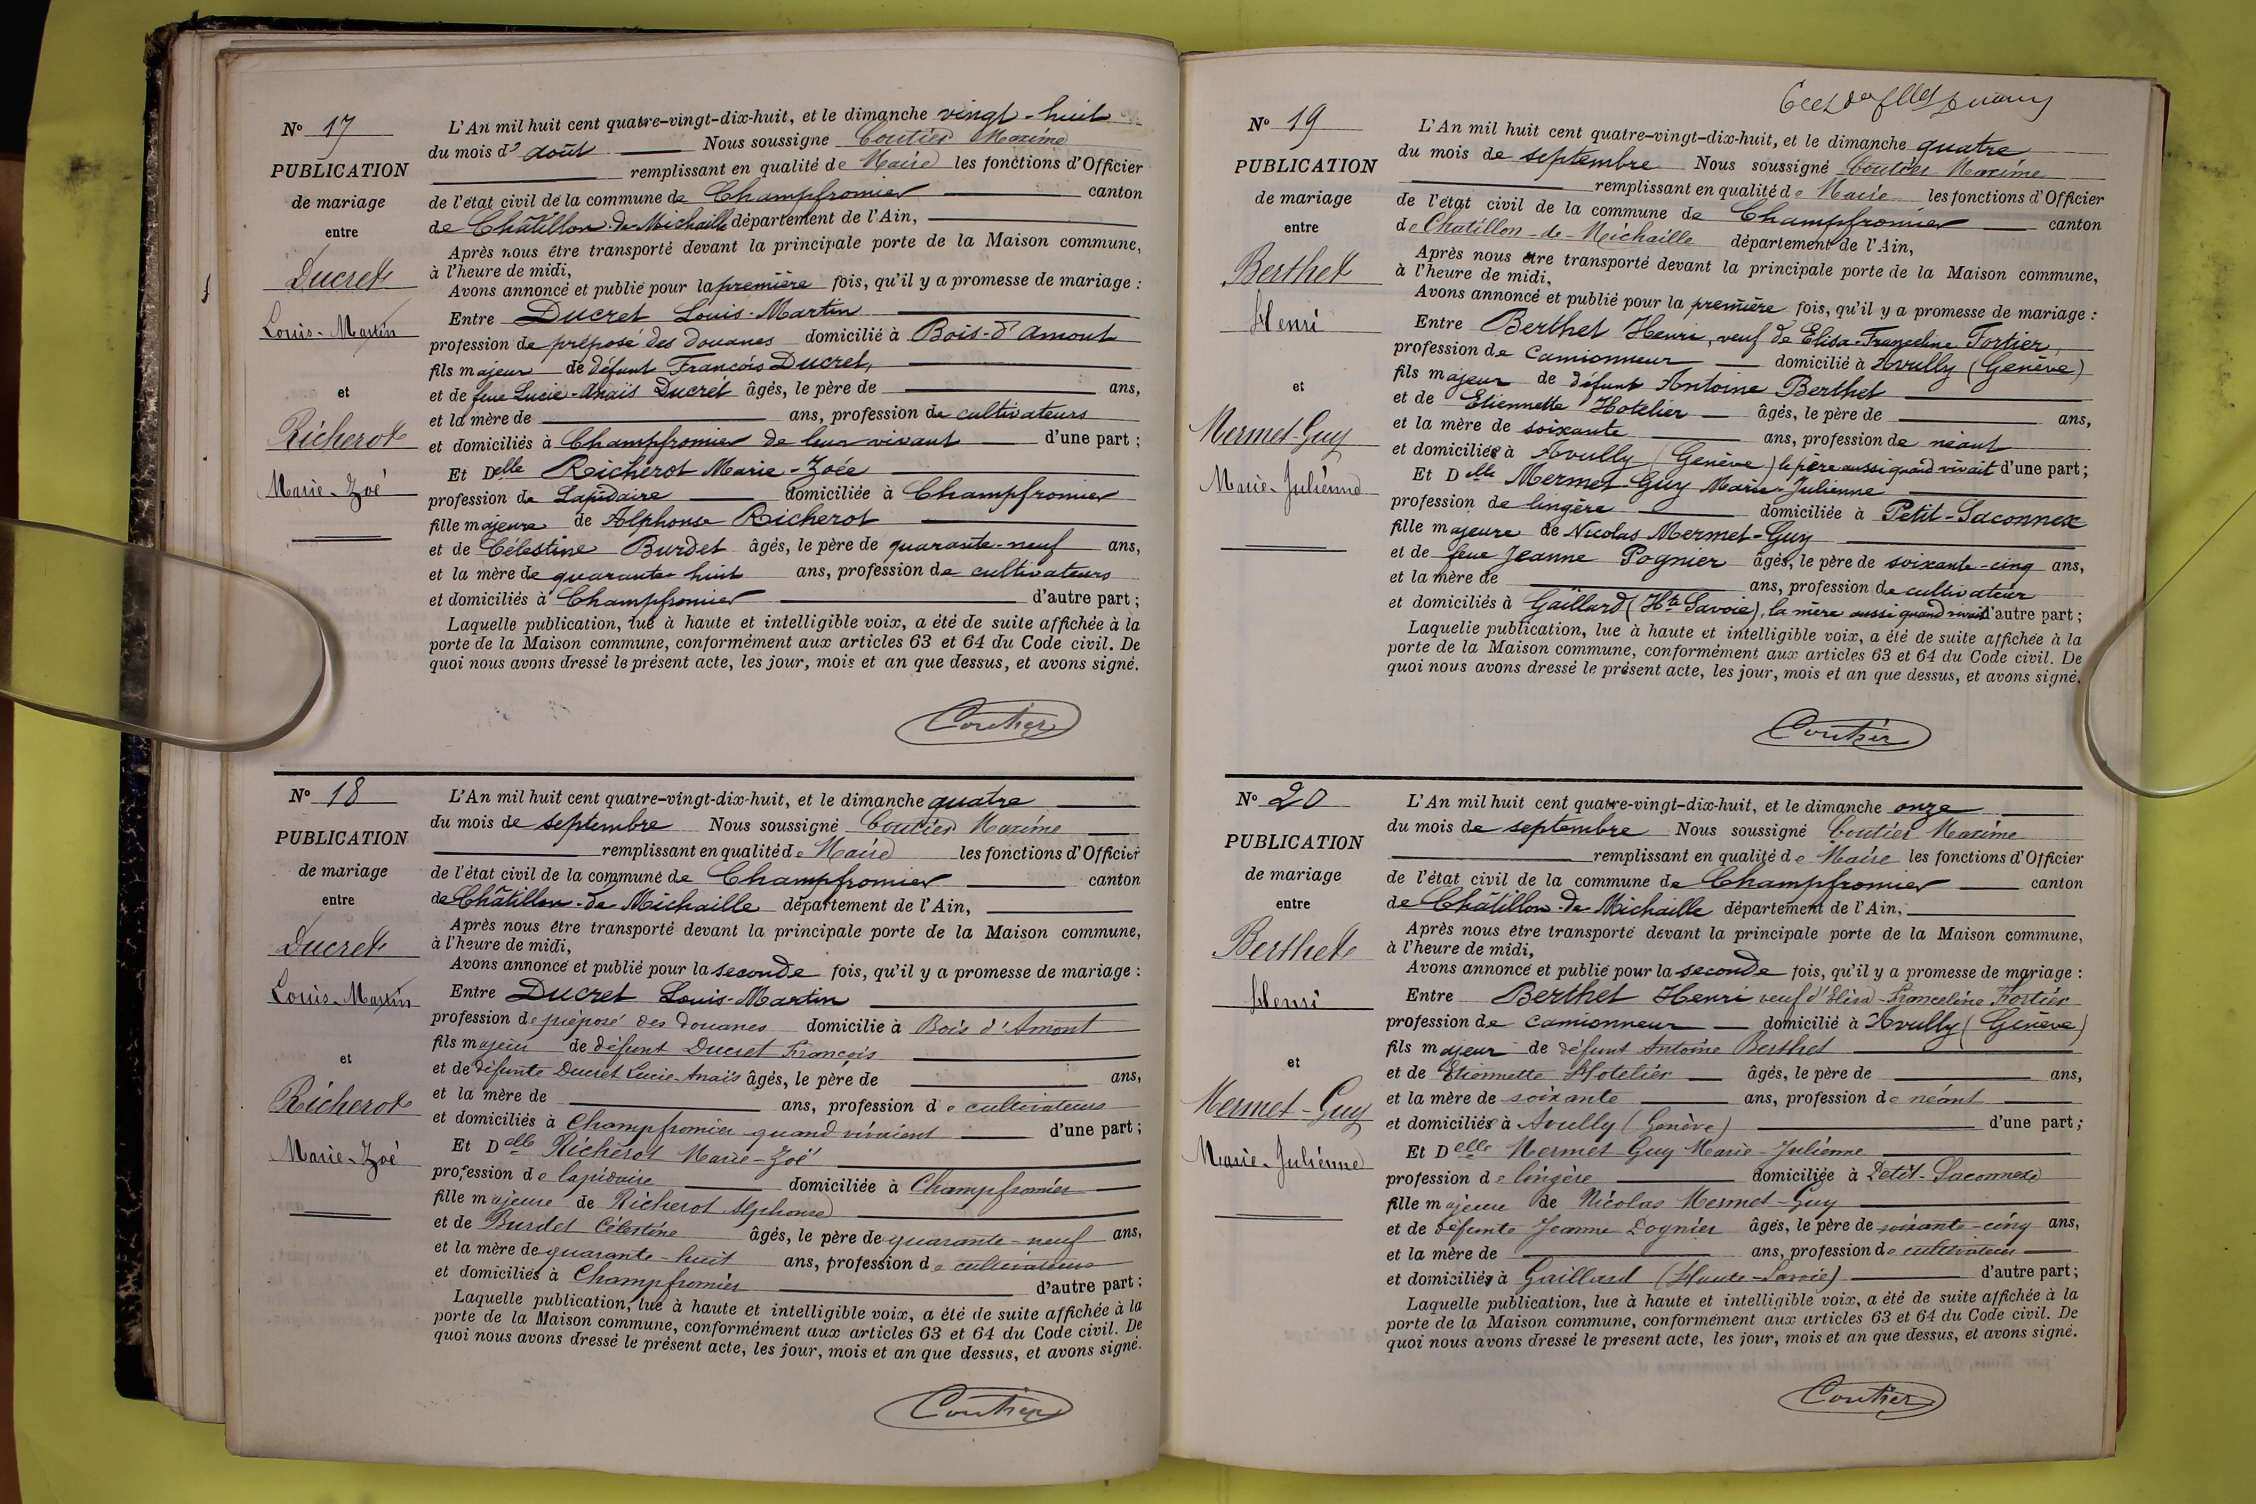 N° 17
PUBLICATION
de mariage
entre
Ducret
Louis-Martin
et
Richerot
Marie-Zoé
L'An mil huit cent quatre-vingt-dix-huit, et le dimanche vingt-huit
du mois d'août Nous soussigné Coutier Maxime
remplissant en qualité de Maire les fonctions d'Officier
de l'état civil de la commune de Champfromier canton
de Châtillon-de-Michaille département de l'Ain,
Après nous être transporté devant la principale porte de la Maison commune,
à l'heure de midi,
Avons annoncé et publié pour la première fois, qu'il y a promesse de mariage :
Entre Ducret Louis-Martin
profession de préposé des douanes domicilié à Bois-d'Amont
fils majeur de défunt François Ducret,
et de feue Lucie-Anaïs Ducret âgés, le père de ans,
et la mère de ans, profession de cultivateurs
et domiciliés à Champfromier de leur vivant d'une part ;
Et Delle Richerot Marie-Zoée
profession de Lapidaire domiciliée à Champfromier
fille majeure de Alphonse Richerot
et de Célestine Burdet âgés, le père de quarante-neuf ans,
et la mère de quarante-huit ans, profession de cultivateurs
et domiciliés à Champfromier d'autre part ;
Laquelle publication, lue à haute et intelligible voix, a été de suite affichée à la
porte de la Maison commune, conformément aux articles 63 et 64 du Code civil. De
quoi nous avons dressé le présent acte, les jour, mois et an que dessus, et avons signé.
Coutier
N° 18
PUBLICATION
de mariage
entre
Ducret
Louis-Martin
et
Richerot
Marie-Zoé
L'An mil huit cent quatre-vingt-dix-huit, et le dimanche quatre
du mois de septembre Nous soussigné Coutier Maxime
remplissant en qualité de Maire les fonctions d'Officier
de l'état civil de la commune de Champfromier canton
de Châtillon-de-Michaille département de l'Ain,
Après nous être transporté devant la principale porte de la Maison commune,
à l'heure de midi,
Avons annoncé et publié pour la seconde fois, qu'il y a promesse de mariage :
Entre Ducret Louis-Martin
profession de préposé des douanes domicilié à Bois d'Amont
fils majeur de défunt Ducret François
et de défunte Ducret Lucie-Anaïs âgés, le père de ans,
et la mère de ans, profession de cultivateurs
et domiciliés à Champfromier quand vivaient d'une part ;
Et Delle Richerot Marie-Zoé
profession de lapidaire domiciliée à Champfromier
fille majeure de Richerot Alphonse
et de Burdet Célestine âgés, le père de quarante-neuf ans,
et la mère de quarante-huit ans, profession de cultivateurs
et domiciliés à Champfromier d'autre part ;
Laquelle publication, lue à haute et intelligible voix, a été de suite affichée à la
porte de la Maison commune, conformément aux articles 63 et 64 du Code civil. De
quoi nous avons dressé le présent acte, les jour, mois et an que dessus, et avons signé.
Coutier
N° 19
PUBLICATION
de mariage
entre
Berthet
Henri
et
Mermet-Guy
Marie-Julienne
L'An mil huit cent quatre-vingt-dix-huit, et le dimanche quatre
du mois de septembre Nous soussigné Coutier Maxime
remplissant en qualité de Maire les fonctions d'Officier
de l'état civil de la commune de Champfromier canton
de Chatillon-de-Michaille département de l'Ain,
Après nous être transporté devant la principale porte de la Maison commune,
à l'heure de midi,
Avons annoncé et publié pour la première fois, qu'il y a promesse de mariage :
Entre Berthet Henri, veuf de Elisa-Franceline Tortier,
profession de camionneur domicilié à Avully (Genève)
fils majeur de défunt Antoine Berthet
et de Etiennette Hotelier âgés, le père de ans,
et la mère de soixante ans, profession de néant
et domiciliés à Avully (Genève) le père aussi quand vivait d'une part ;
Et Delle Mermet-Guy Marie-Julienne
profession de lingère domiciliée à Petit-Saconnex
fille majeure de Nicolas Mermet-Guy
et de feue Jeanne Pognier âgés, le père de soixante-cinq ans,
et la mère de ans, profession de cultivateur
et domiciliés à Gaillard (Hte Savoie), la mère aussi quand vivait d'autre part ;
Laquelle publication, lue à haute et intelligible voix, a été de suite affichée à la
porte de la Maison commune, conformément aux articles 63 et 64 du Code civil. De
quoi nous avons dressé le présent acte, les jour, mois et an que dessus, et avons signé.
Coutier
N° 20
PUBLICATION
de mariage
entre
Berthet
Henri
et
Mermet-Guy
Marie-Julienne
L'An mil huit cent quatre-vingt-dix-huit, et le dimanche onze
du mois de septembre Nous soussigné Coutier Maxime
remplissant en qualité de Maire les fonctions d'Officier
de l'état civil de la commune de Champfromier canton
de Châtillon-de-Michaille département de l'Ain,
Après nous être transporté devant la principale porte de la Maison commune,
à l'heure de midi,
Avons annoncé et publié pour la seconde fois, qu'il y a promesse de mariage :
Entre Berthet Henri veuf d'Elisa-Franceline Tortier
profession de camionneur domicilié à Avully (Genève)
fils majeur de défunt Antoine Berthet
et de Etiennette Hotelier âgés, le père de ans,
et la mère de soixante ans, profession de néant
et domiciliés à Avully (Genève) d'une part ;
Et Delle Mermet-Guy Marie-Julienne
profession de lingère domiciliée à Petit-Saconnex
fille majeure de Nicolas Mermet-Guy
et de défunte Jeanne Pognier âgés, le père de soixante-cinq ans,
et la mère de ans, profession de cultivateur
et domiciliés à Gaillard (Haute-Savoie) d'autre part ;
Laquelle publication, lue à haute et intelligible voix, a été de suite affichée à la
porte de la Maison commune, conformément aux articles 63 et 64 du Code civil. De
quoi nous avons dressé le présent acte, les jour, mois et an que dessus, et avons signé.
Coutier